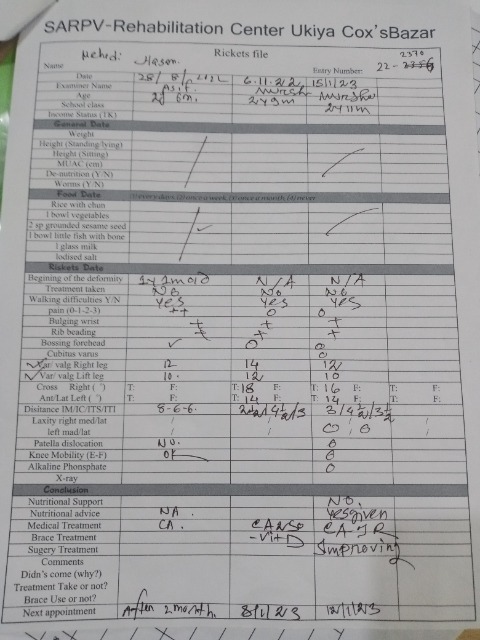 SARPV-Rehabilitation Center Ukiya Cox'sBazar
Rickets file
Name Mehedi Hasan 2370
Entry Number: 22-
Date 28/8/2022 6.11.22 15/1/23
Examiner Name Asit. Mursh Murshe
Age 2y 6m. 2y9m 2y11m
School class
Income Status (TK)
General Data
Weight
Height (Standing/lying)
Height (Sitting)
MUAC (cm)
De-nutrition (Y/N)
Worms (Y/N)
Food Data 0 every days, (2) once a week, (1) once a month, (0) never
Rice with chun
1 bowl vegetables
2 sp grounded sesame seed
1 bowl little fish with bone
1 glass milk
Iodised salt
Rickets Data
Begining of the deformity 1y 1m old N/A N/A
Treatment taken No No No
Walking difficulties Y/N Yes Yes Yes
pain (0-1-2-3) ++ 0 0
Bulging wrist + + +
Rib beading + + +
Bossing forehead ✓ 0 0
Cubitus varus 0
✓Var/ valg Right leg 12 14 12
✓Var/ valg Lift leg 10. 12 10
Cross Right (°) T: F: T:18 F: T: 16 F: T: F:
Ant/Lat Left (°) T: F: T:14 F: T: 14 F: T: F:
Disitance IM/IC/ITS/ITI 8-6-6. 2½/4½/3 3/4½/3½
Laxity right med/lat / / /
left mad/lat / / 0 0
Patella dislocation No. 0
Knee Mobility (E-F) OK 0
Alkaline Phonsphate 0
X-ray
Conclusion
Nutritional Support No.
Nutritional advice NA. Yesgiven
Medical Treatment CA.
Brace Treatment -Vit D
Sugery Treatment Improving
Comments
Didn's come (why?)
Treatment Take or not?
Brace Use or not?
Next appointment After 2 month. 8/1/23 12/1/23